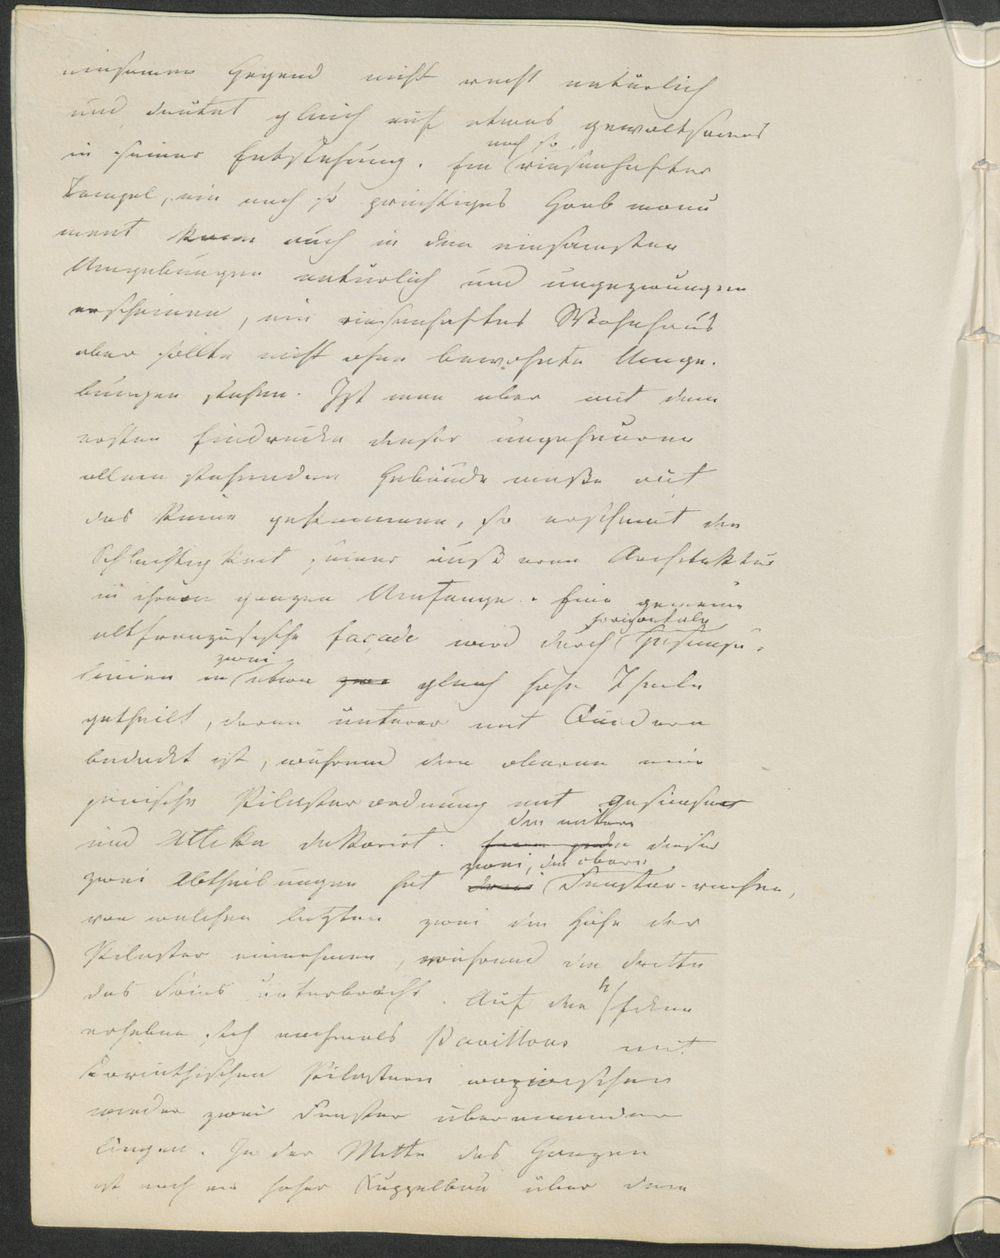 einsamen Gegend nicht recht natürlich
und deutet gleich auf etwas gewaltsames
in seiner Entstehung. Ein noch so riesenhafter
Tempel, ein noch so prächtiges Grabmonu
ment kann auch in den einsamsten
Umgebungen natürlich und ungezwungen
erscheinen, ein riesenhaftes Wohnhaus
aber sollte nicht ohne bewohnte Umge-
bungen stehen. Ist man aber mit dem
ersten Eindrucke dieser ungeheuren
allein stehenden Gebäude maße auf
das Reine gekommen, so erscheint die
Schlechtigkeit seiner äußeren Architektur
in ihrem ganzen Umfange. Eine gemeine
altfranzösische façade wird durch horizontale Gesimse-
linien in zwei gleich hohe Theile
getheilt, deren unterer mit Quadern
bedeckt ist, während den oberen eine
jonische Pilasterordnung mit Gesimse
und Attika dekorirt. der untere dieser
zwei Abtheilungen hat zwei, die obere drei Fenster-reihen,
von welchen letzten zwei die Höhe der
Pilaster einnehmen, während die dritte
das Fries unterbricht. Auf den 4 Ecken
erheben sich nochmals Pavillons mit
korinthischen Pilastern wozwischen
wieder zwei Fenster übereinander
liegen. In der Mitte des Ganzen
ist noch ein hoher Kuppelbau über dem